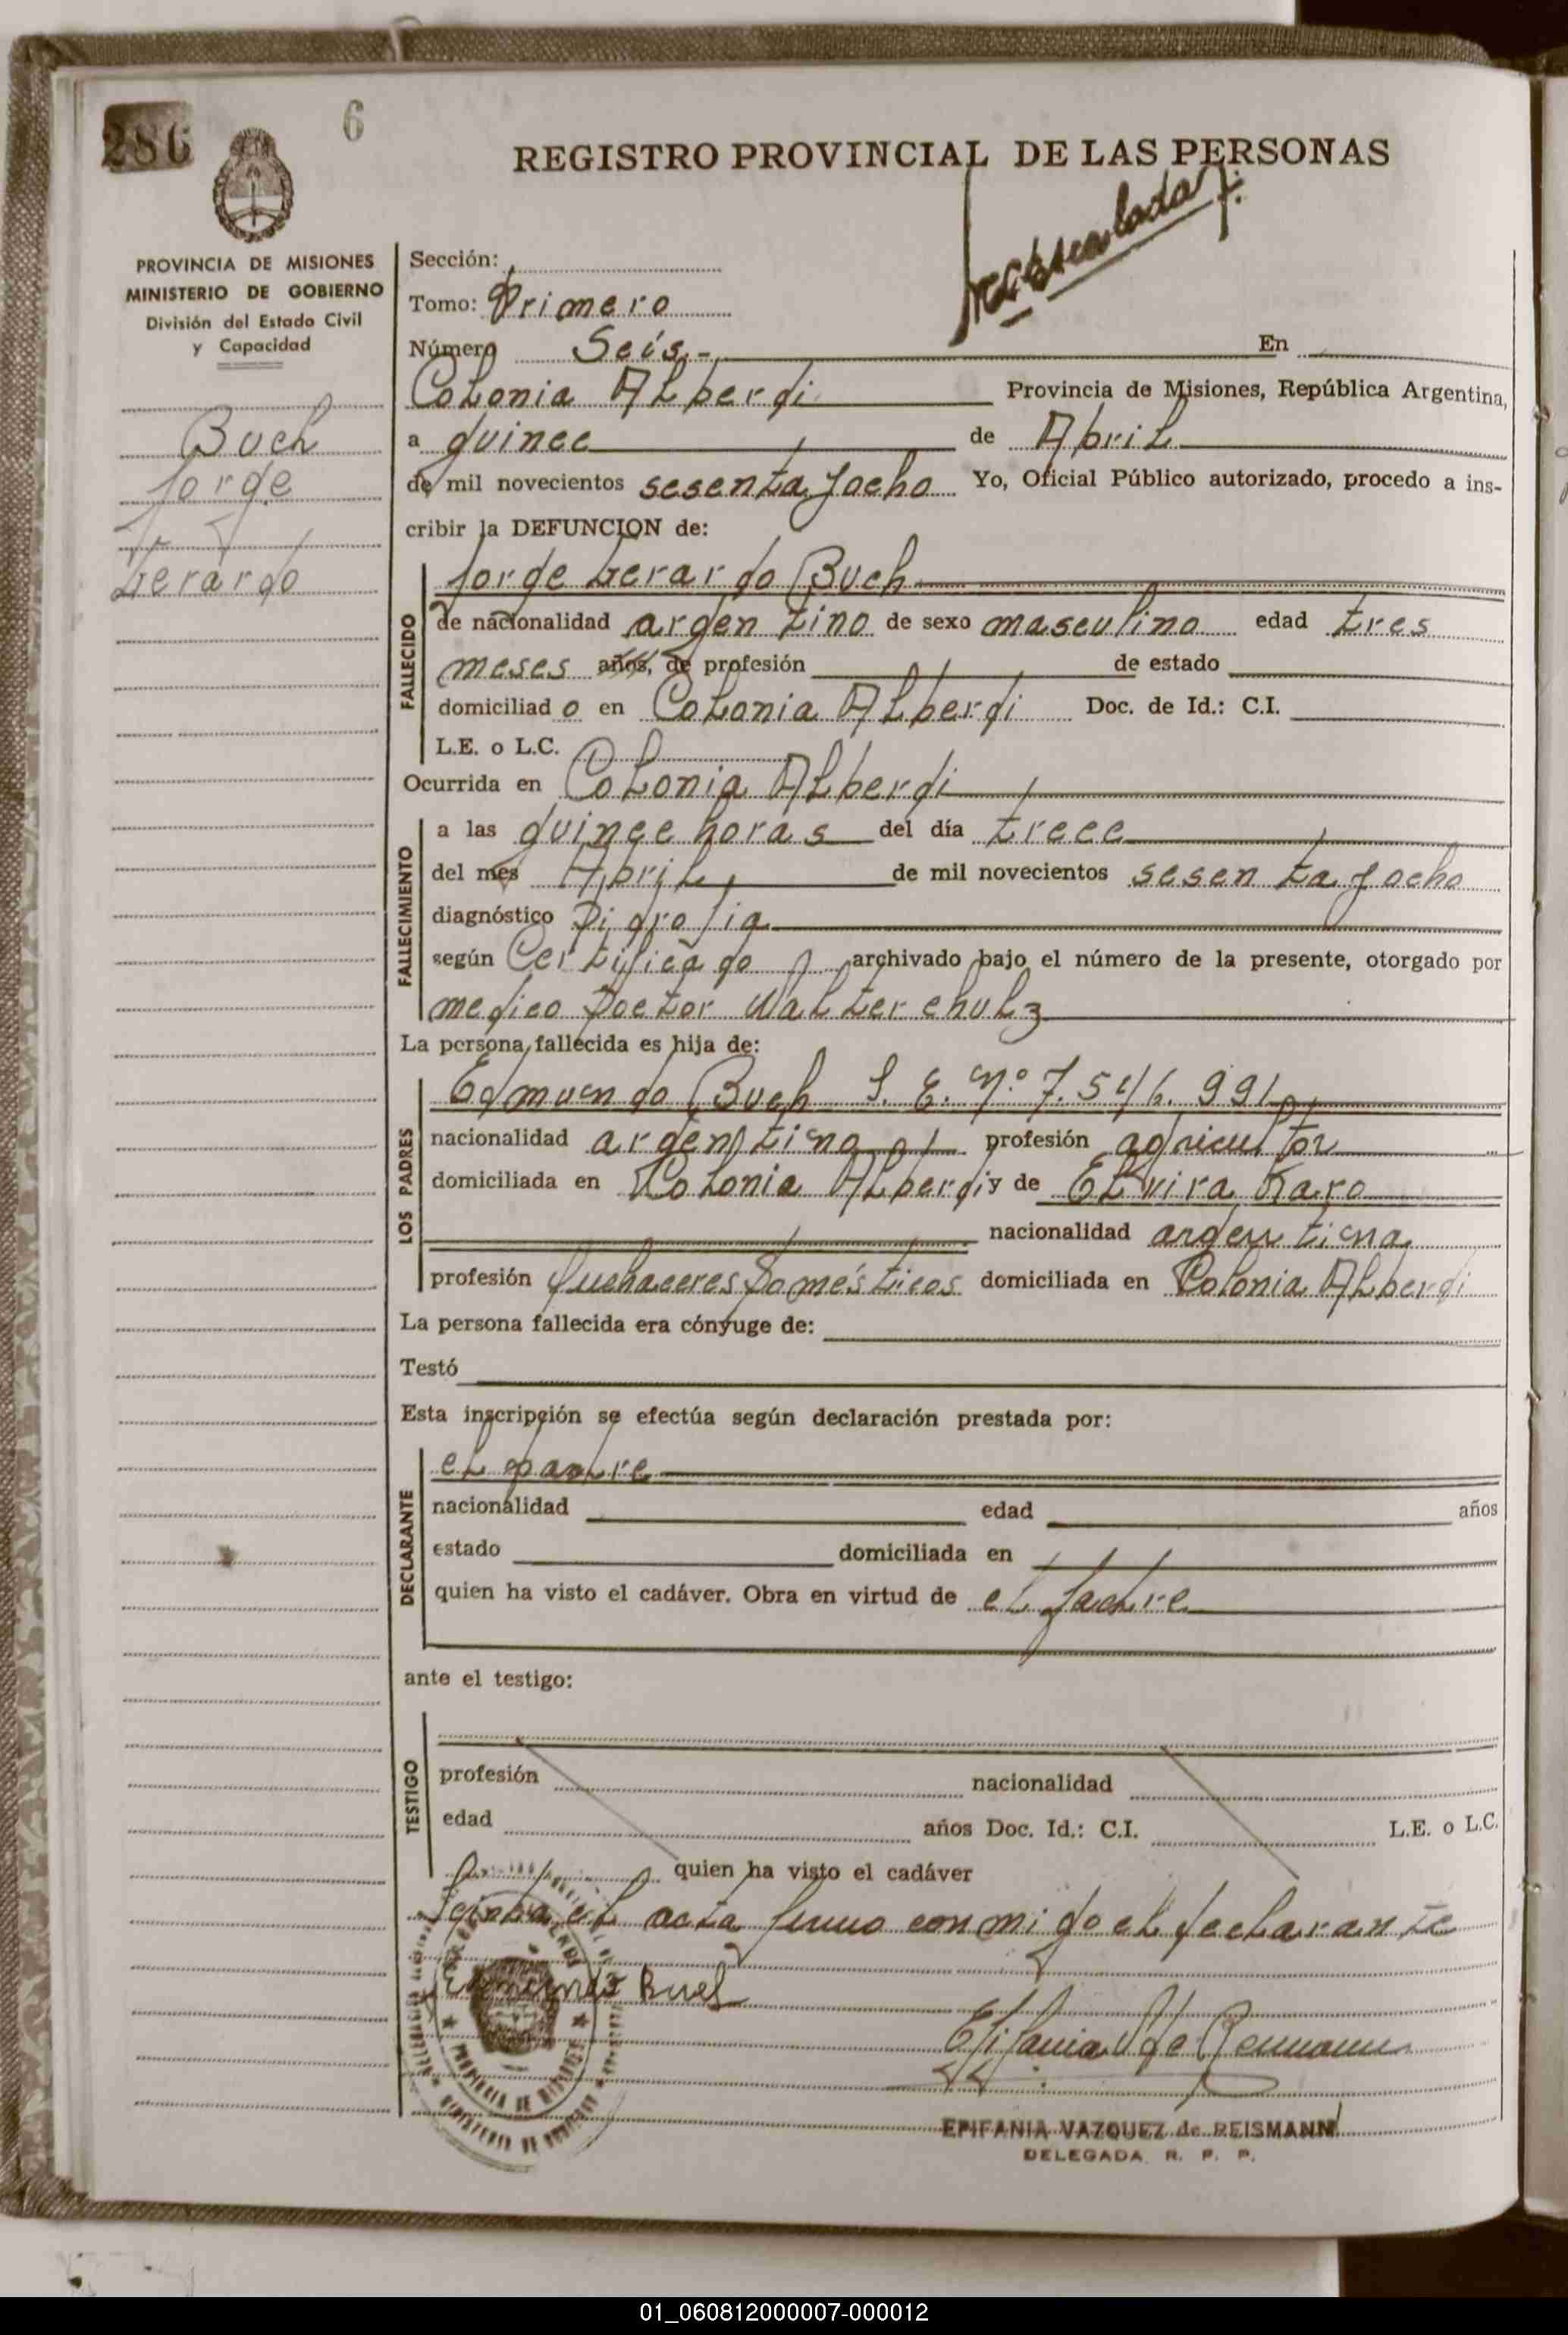 286
6
REGISTRO PROVINCIAL DE LAS PERSONAS
PROVINCIA DE MISIONES
MINISTERIO DE GOBIERNO
División del Estado Civil
y Capacidad
Buch
Jorge
Gerardo
Sección:
Tomo: Primero
Número Seis.- En
Colonia Alberdi Provincia de Misiones, República Argentina,
a quince de Abril
de mil novecientos sesenta y ocho Yo, Oficial Público autorizado, procedo a ins-
cribir la DEFUNCION de:
FALLECIDO
Jorge Gerardo Buch
de nacionalidad argentino de sexo masculino edad tres
meses años, de profesión de estado
domiciliado en Colonia Alberdi Doc. de Id.: C.I.
L.E. o L.C.
Ocurrida en Colonia Alberdi
FALLECIMIENTO
a las quince horas del día trece
del mes Abril de mil novecientos sesenta y ocho
diagnóstico
según Certificado archivado bajo el número de la presente, otorgado por
medico Doctor Walter chulz
La persona fallecida es hija de:
LOS PADRES
Edmundo Buch L. E. Nº 7.546.991
nacionalidad argentino profesión agricultor
domiciliada en Colonia Alberdi y de Elvira
nacionalidad argentina
profesión Quehaceres Domésticos domiciliada en Colonia Alberdi
La persona fallecida era cónyuge de:
Testó
Esta inscripción se efectúa según declaración prestada por:
DECLARANTE
el padre
nacionalidad edad años
estado domiciliada en
quien ha visto el cadáver. Obra en virtud de el padre
ante el testigo:
TESTIGO
profesión nacionalidad
edad años Doc. Id.: C.I. L.E. o L.C.
quien ha visto el cadáver
el acta firmo conmigo el declarante
Edmundo Buch
PROVINCIA DE MISIONES
MINISTERIO DE GOBIERNO
EPIFANIA VAZQUEZ de REISMANN
DELEGADA R. P. P.
01_060812000007-000012